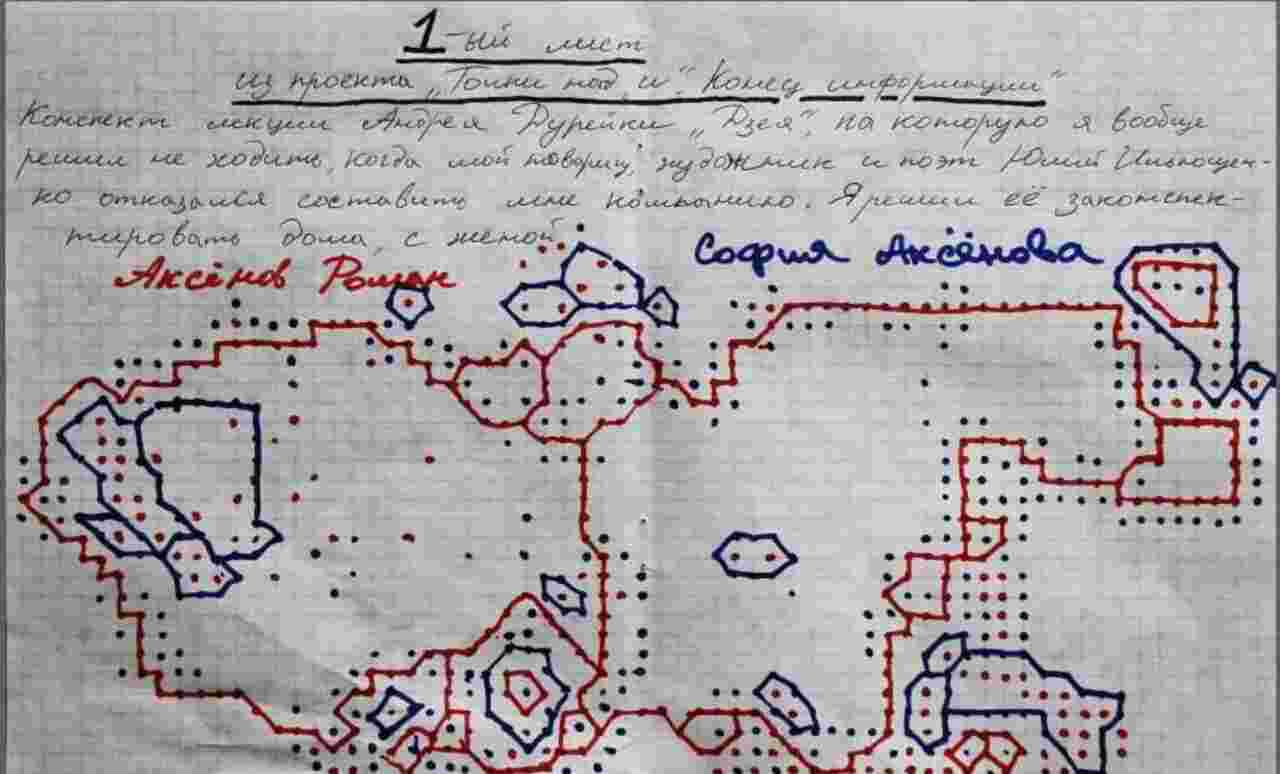 1-ый лист
из проекта „Точки над „и“. Конец информации“
Конспект лекции Андрея Дурейки „Дзея“, на которую я вообще
решил не ходить, когда мой товарищ, художник и поэт Юлий Ильющен-
ко отказался составить мне компанию. Я решил её законспек-
тировать дома, с женой.
Аксёнов Роман
София Аксёнова